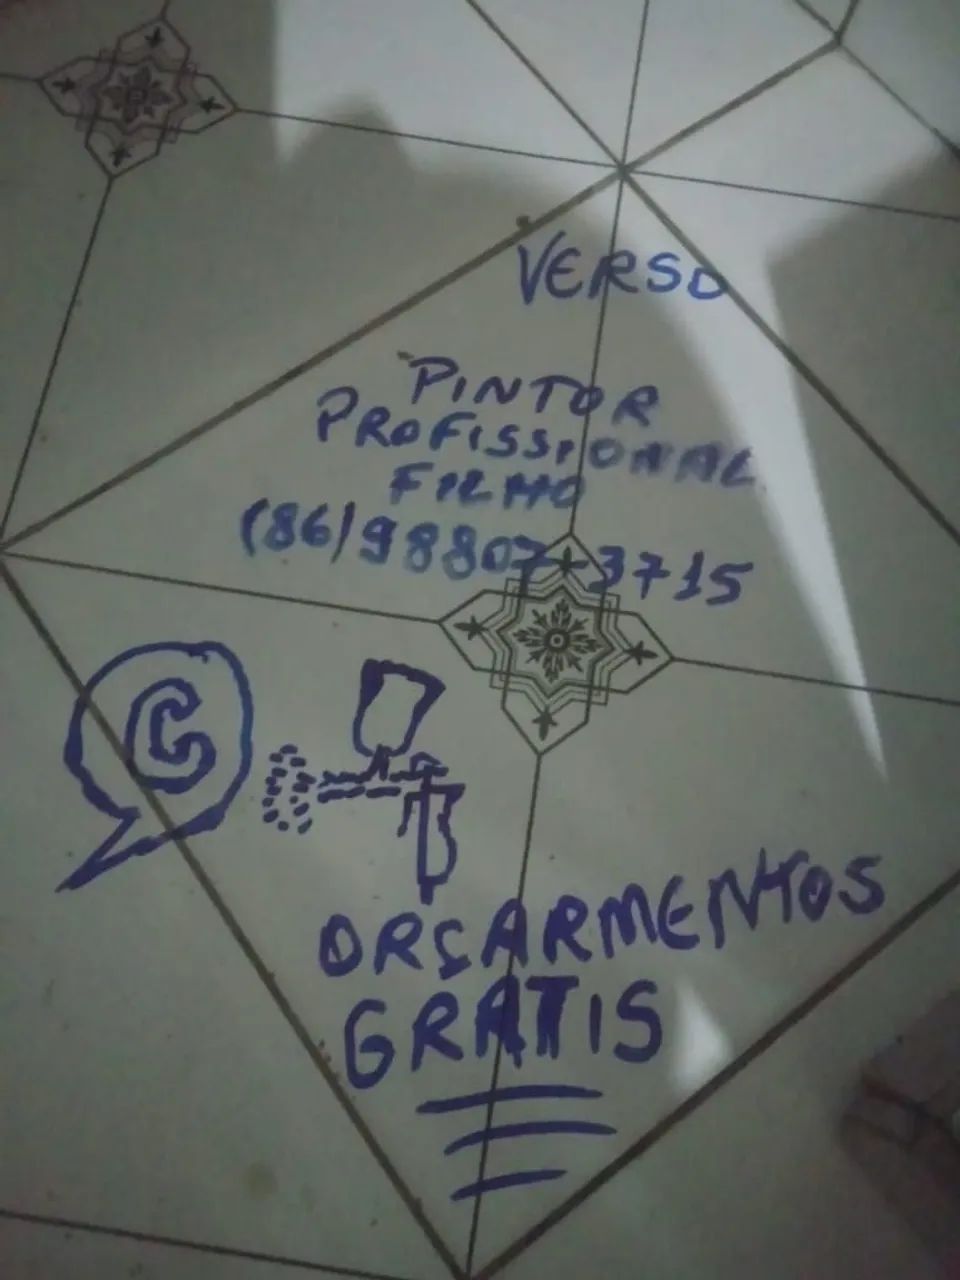 VERSO
PINTOR
PROFISSIONAL
FILHO
(86)98807-3715
G
ORÇARMENTOS
GRATIS